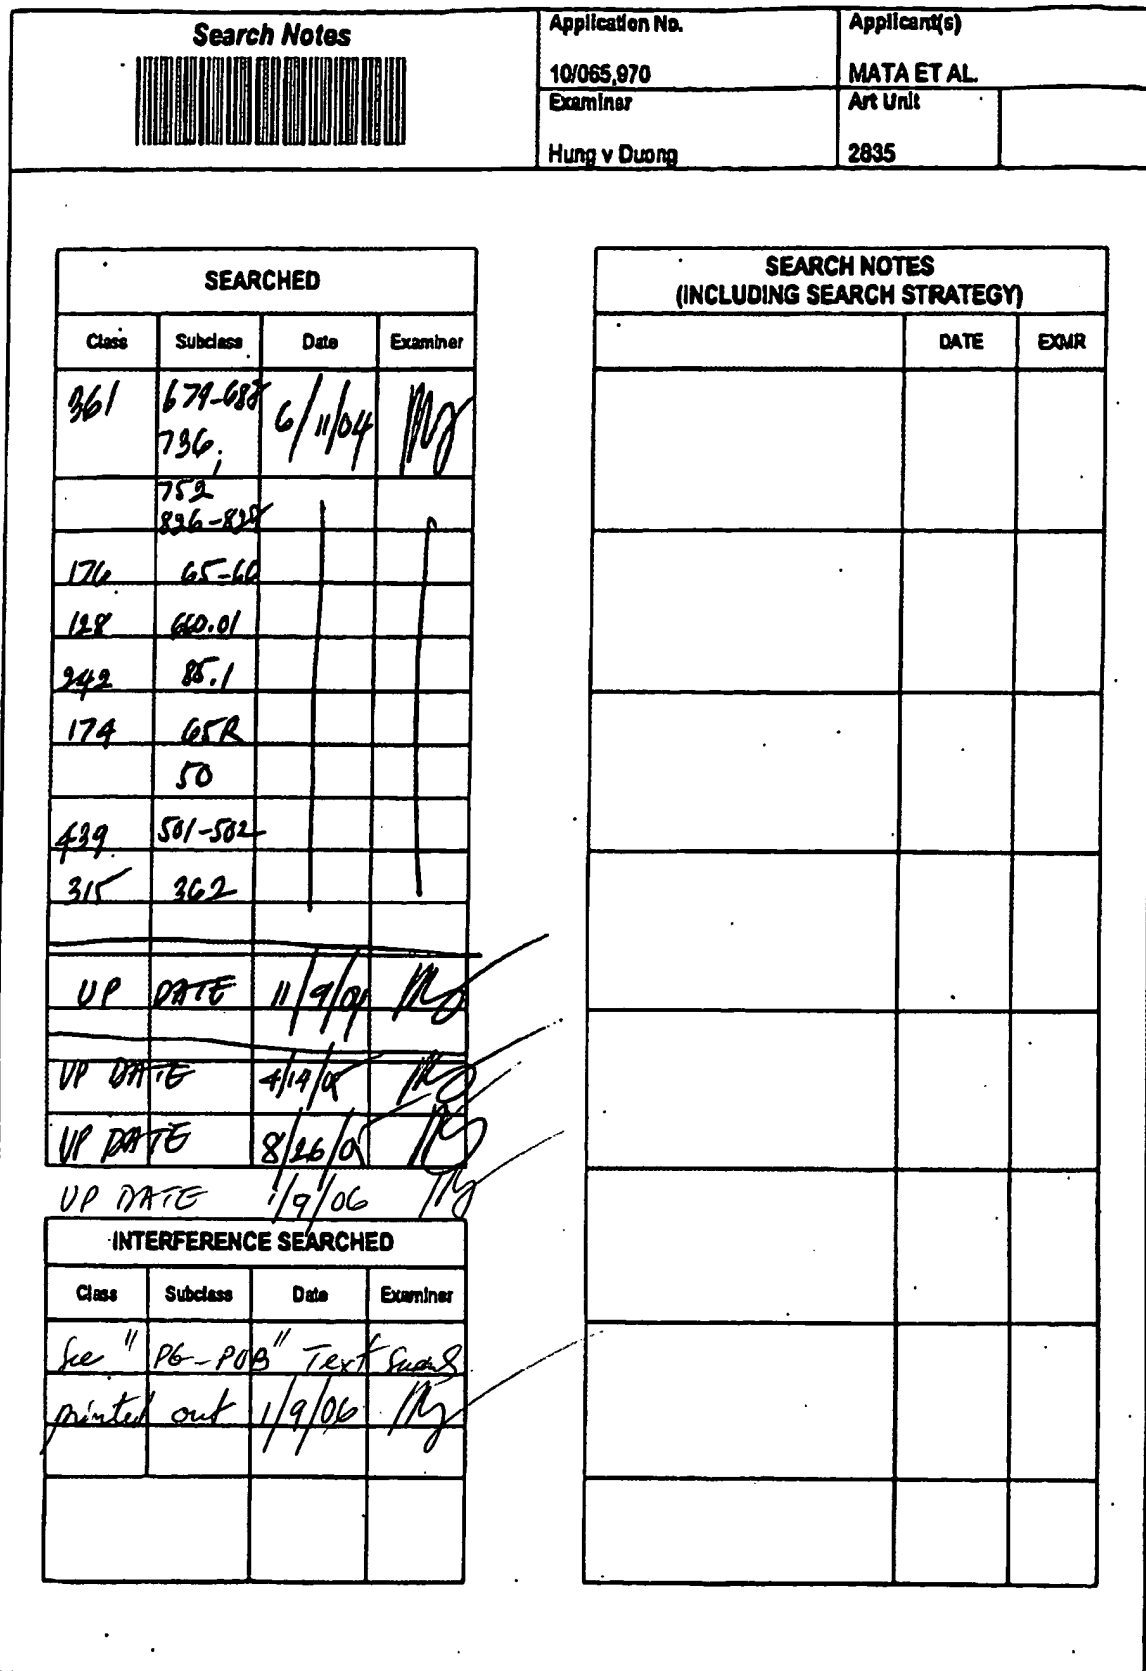 Search Notes
Application No.
10/065,970
Applicant(s)
MATA ET AL.
Examiner
Hung v Duong
Art Unit
2835
SEARCHED
Class Subclass Date Examiner
361 679-688 6/11/04
736;
752
826-828
176 65-60
128 660.01
242 85.1
174 65R
50
439 501-502
315 362
UP DATE 11/9/04
UP DATE 4/14/05
UP DATE 8/26/05
UP DATE 1/9/06
INTERFERENCE SEARCHED
Class Subclass Date Examiner
See "PG-PUB" Text
printed out 1/9/06
SEARCH NOTES
(INCLUDING SEARCH STRATEGY)
DATE EXMR